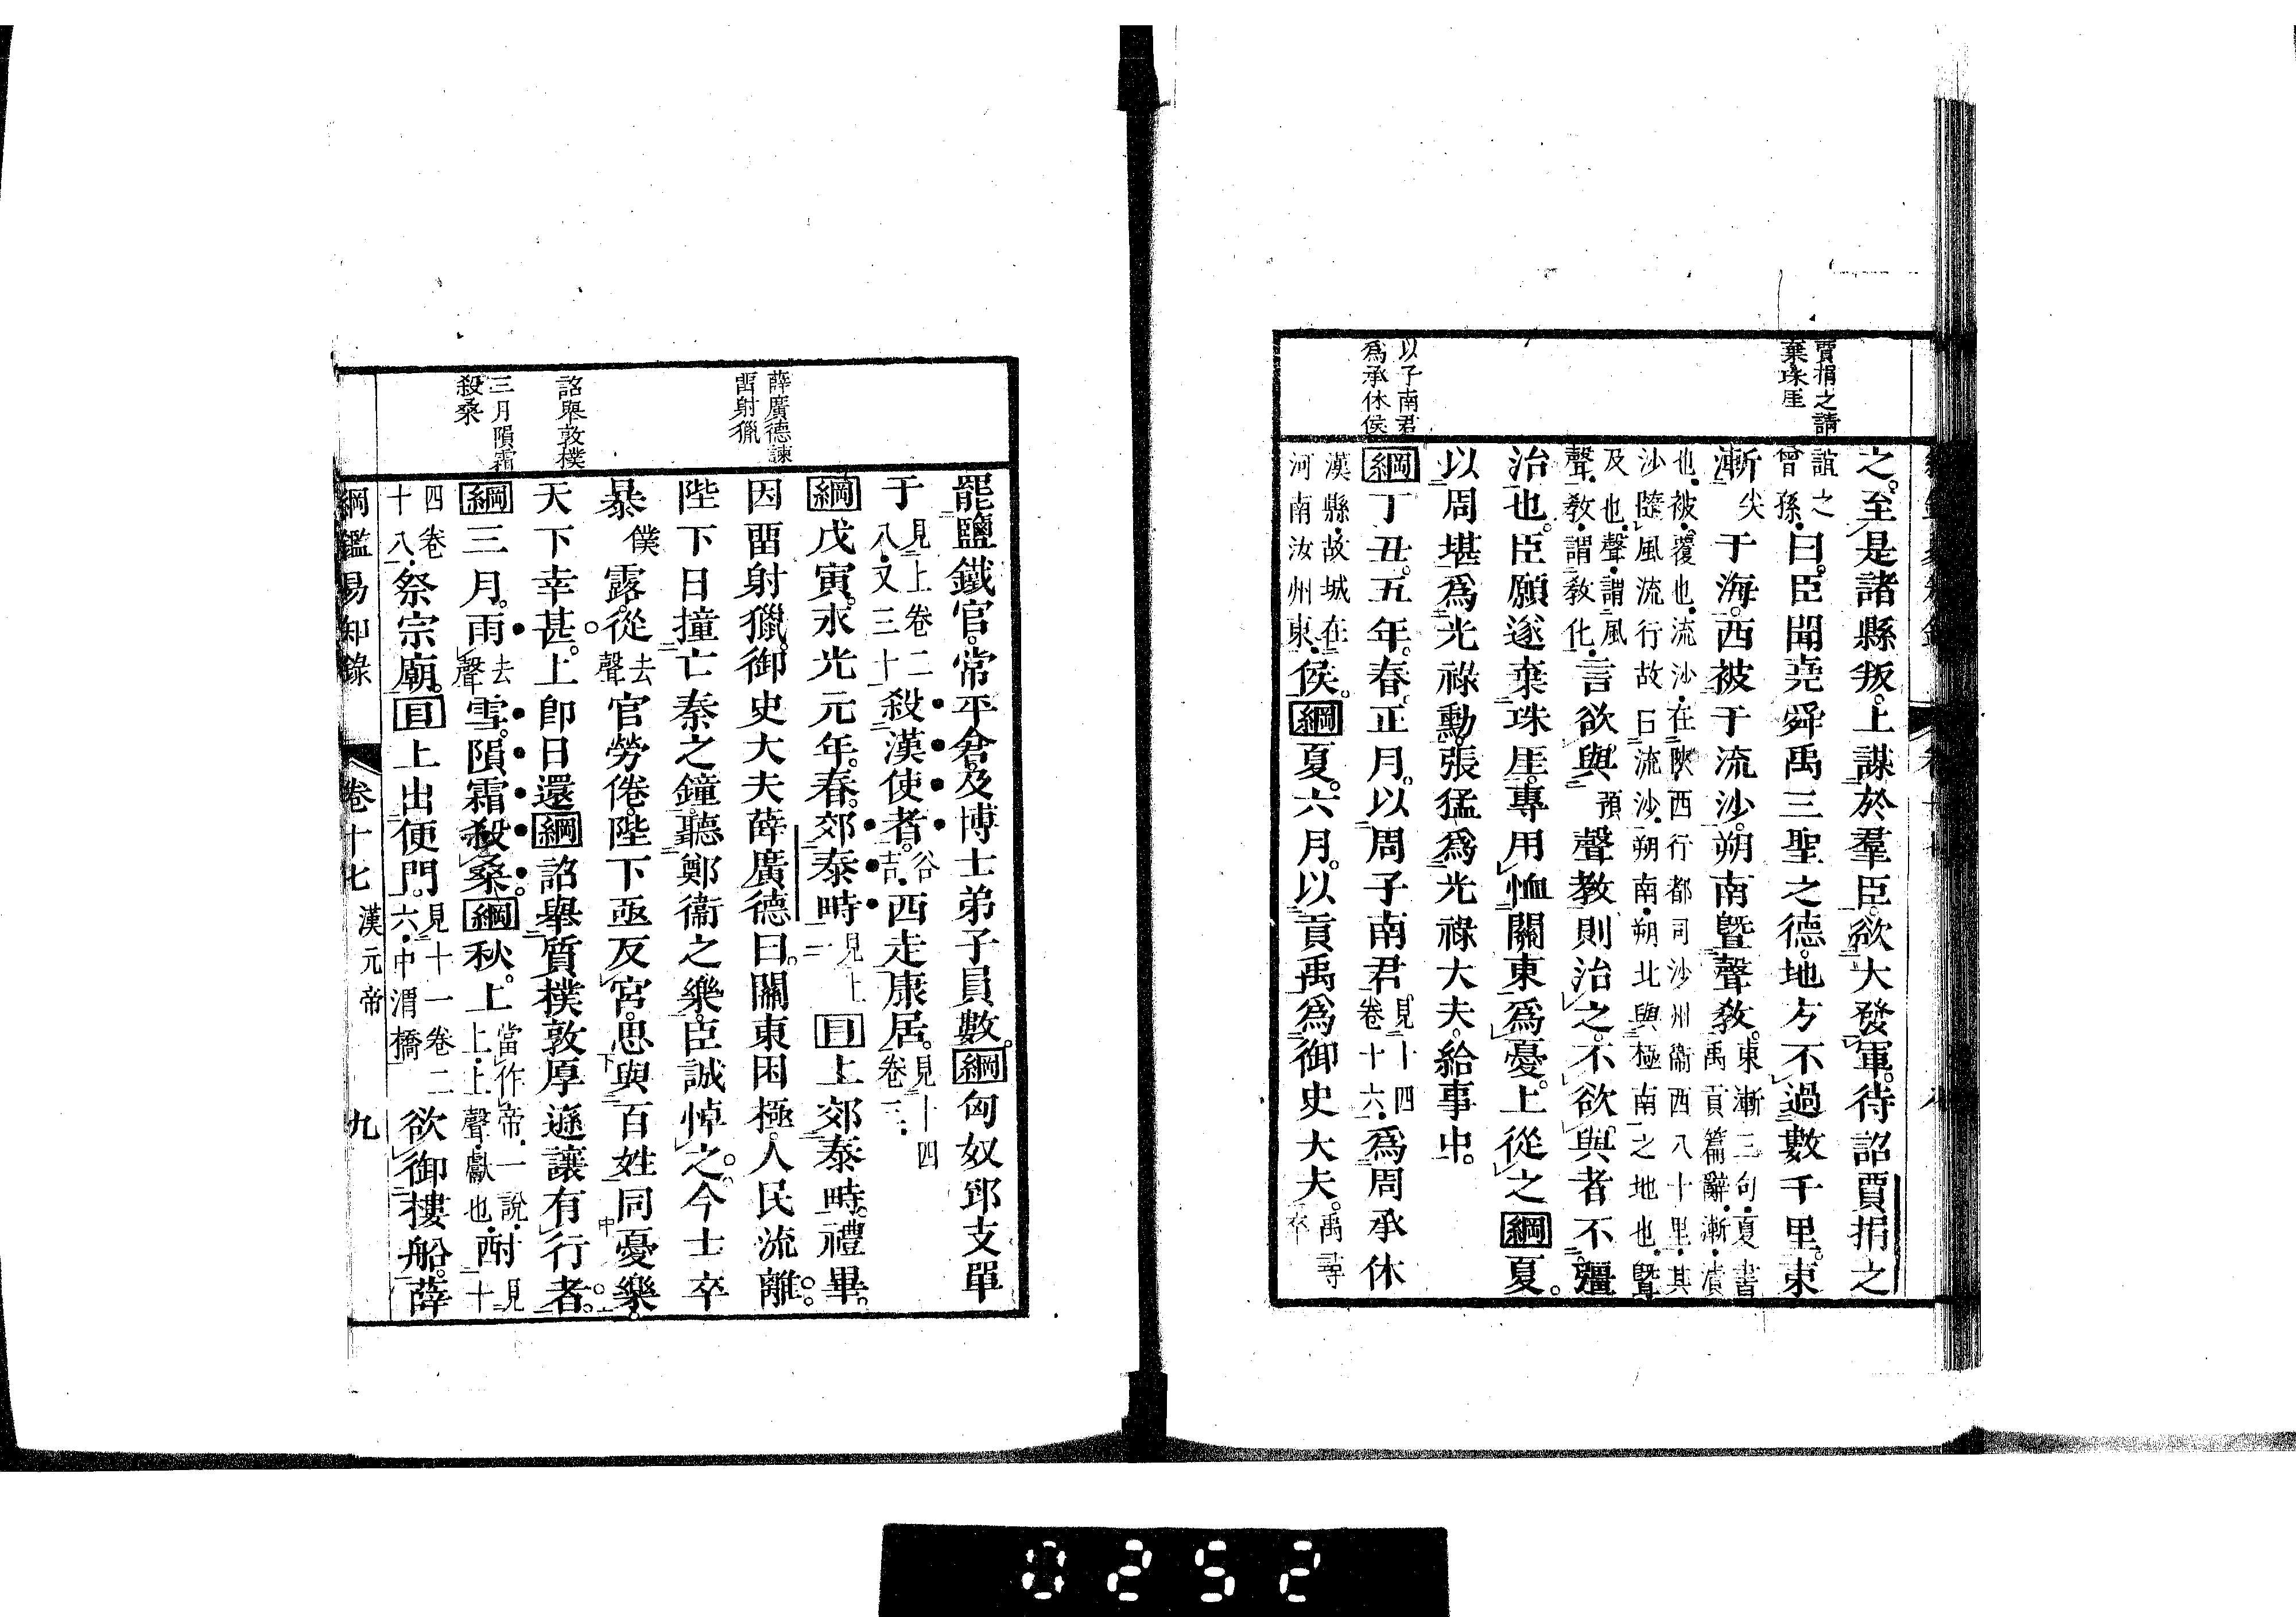 賈捐之請
棄珠厓
以子南君
爲承休侯
之。至是諸縣叛。上謀於羣臣。欲大發軍。待詔賈捐之
誼之
曾孫。
曰。臣聞堯舜禹三聖之德。地方不過數千里。東
漸
尖
于海。西被于流沙。朔南曁聲敎。
東漸三句。夏書
禹貢篇辭。漸。漬
也。被。覆也。流沙。在陝西行都司沙州衞西八十里。其
沙隨風流行故曰流沙。朔南。朔北與極南之地也。曁
及也。聲。謂風
聲。敎。謂敎化。
言欲與
預
聲敎則治之。不欲與者不彊
治也。臣願遂棄珠厓。專用恤關東爲憂。上從之綱夏。
以周堪爲光祿勳。張猛爲光祿大夫。給事中。
綱丁丑。五年。春。正月。以周子南君
見十四
卷十六。
爲周承休
漢縣。故城在
河南汝州東。
侯。綱夏。六月。以貢禹爲御史大夫。
禹尋
卒
薛廣德諫
畱射獵
詔舉敦樸
三月隕霜
殺桑
罷鹽鐵官。常平倉。及博士弟子員數。綱匈奴郅支單
于
見上卷二
八。又三十一
殺漢使者。
谷
吉。
西走康居。
見十四
卷三。
綱戊寅。永光元年。春。郊泰畤
見上
二
目上郊泰畤。禮畢。
因畱射獵。御史大夫薛廣德曰。關東困極。人民流離。
陛下日撞亡秦之鐘。聽鄭衞之樂。臣誠悼之。今士卒
暴
僕
露。從
去
聲
官勞倦。陛下亟反宮。思與百姓同憂樂。
天下幸甚。上卽日還綱詔舉質樸敦厚遜讓有行者。
綱三月。雨
去
聲
雪。隕霜殺桑。綱秋。上
當作帝。一說。
上。上聲。獻也。
酎
見
十
四卷
十八。
祭宗廟。目上出便門。
見十一卷二
六。中渭橋
欲御樓船。薛
綱鑑易知錄
卷十七
漢元帝
九
0252